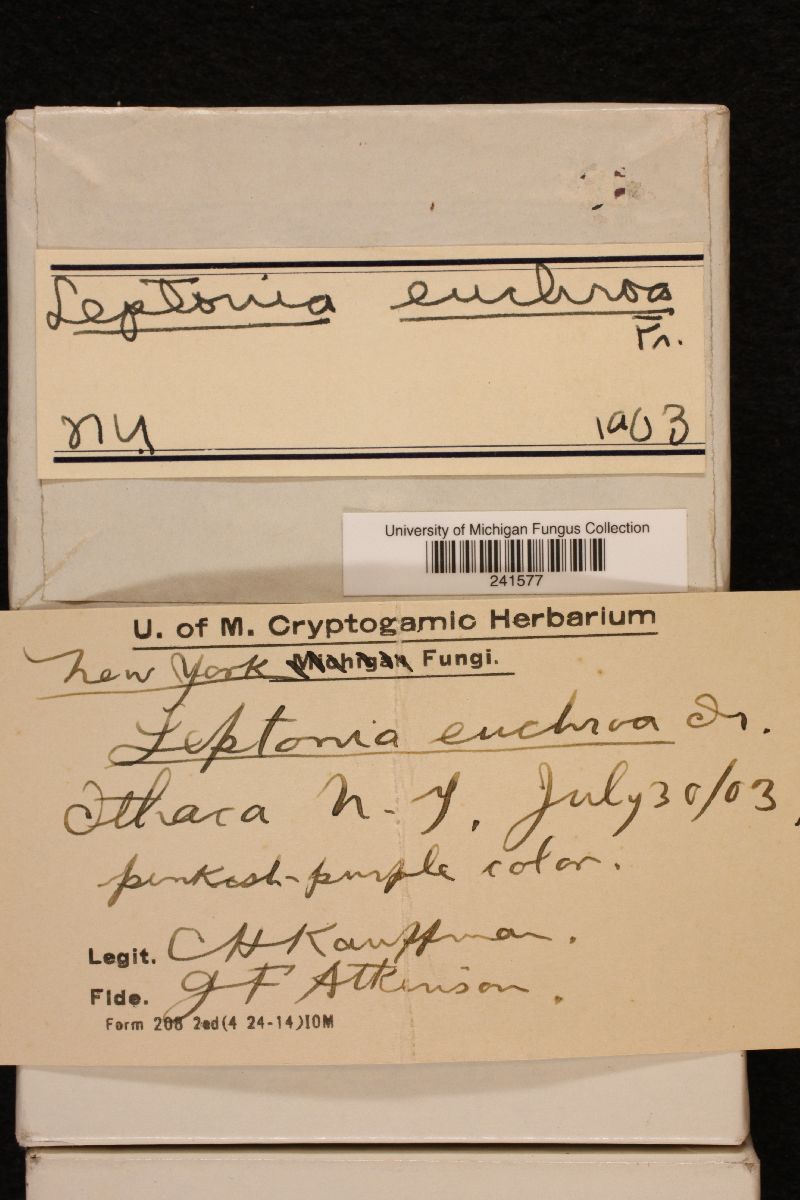 Leptonia euchroa
Fr.
NY. 1903
University of Michigan Fungus Collection
241577
U. of M. Cryptogamic Herbarium
New York Michigan Fungi.
Leptonia euchroa Fr.
Ithaca N. Y. July 30/03,
pinkish-purple color.
Legit. C H Kauffman.
Fide. G F Atkinson.
Form 208 2ed(4 24-14)IOM